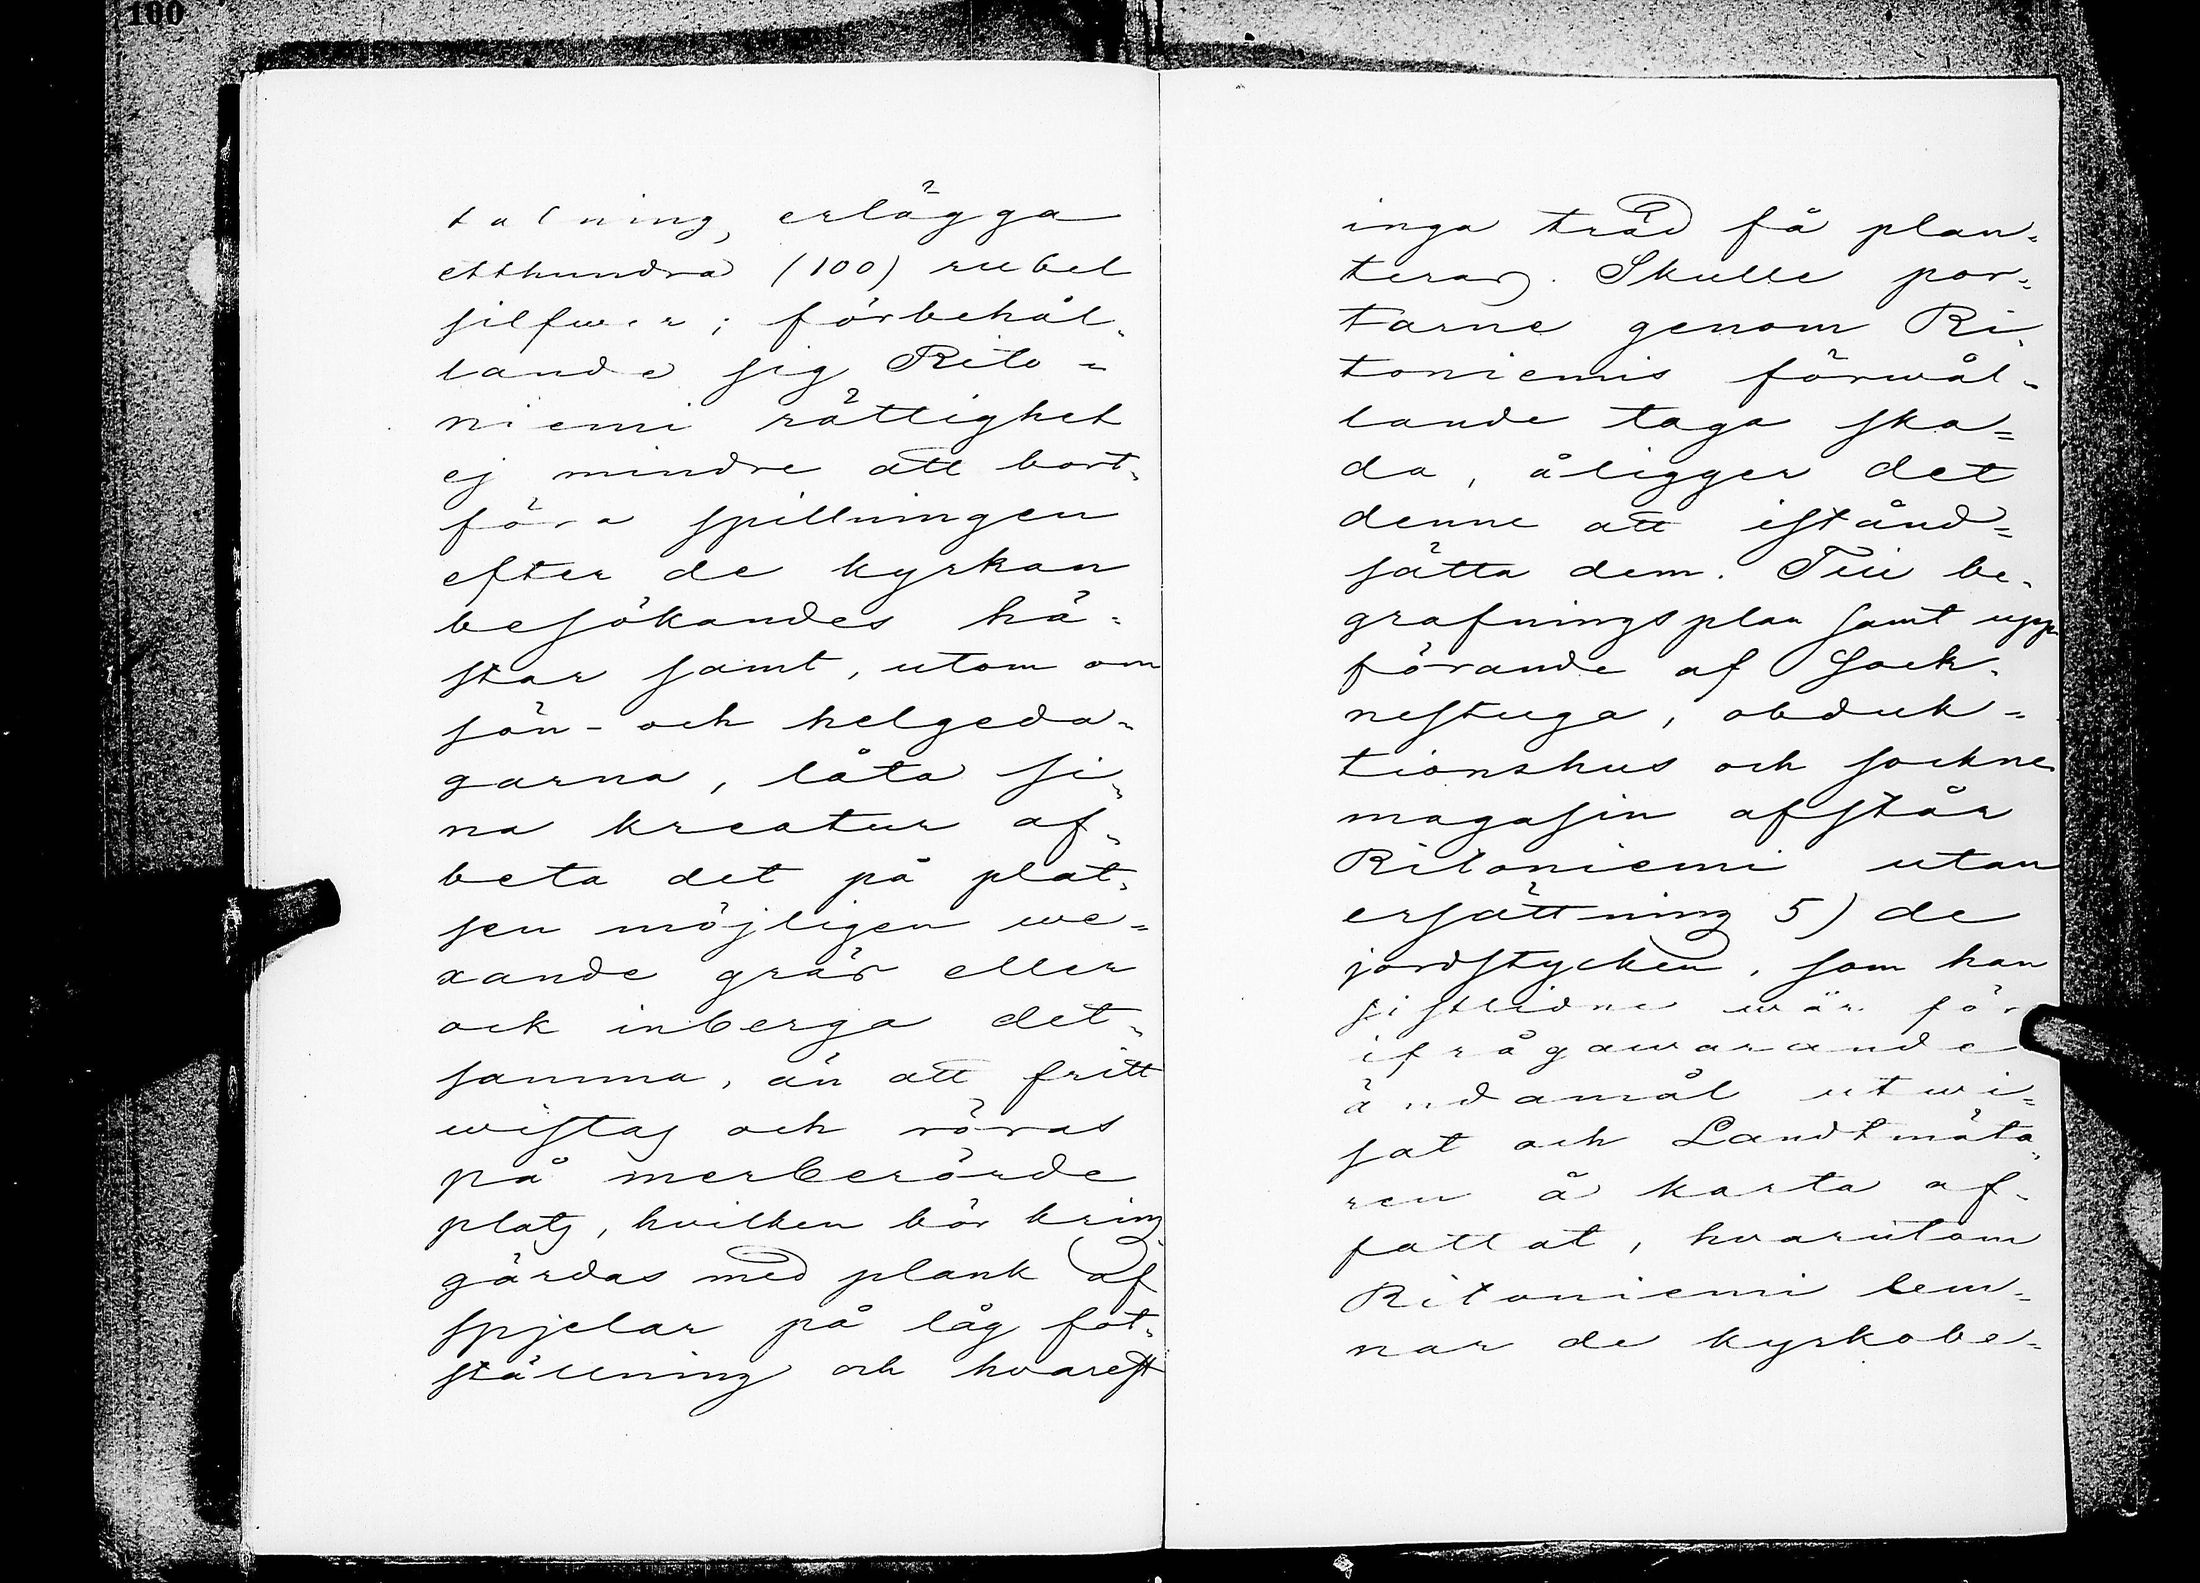 100
talning, erlägga
etthundra (100) rubel
silfwer; förbehål-
lande sig Rito=
niemi rättighet
ej mindre att bort-
föra spillningen
efter de kyrkan
besökandes hä=
star samt, utom om
sön- och helgeda-
garna, låta si-
na kreatur af-
beta det på plat-
sen möjligen we=
xande gräs eller
ock inberga det-
samma, än att fritt
wistas och röras
på merberörde
plats, hvilken bör kring
gärdas med plank af
spjelar på låg fot-
ställning och hvarest
inga träd få plan=
teras. Skulle por=
tarne genom Ri-
toniemis förwål-
lande taga ska=
da, åligger det
denne att istånd=
sätta dem. Till be-
grafningsplan samt upp
förande af Sock-
nestuga, obduk=
tionshus och sockne
magasin afstår
Ritoniemi utan
ersättning 5) de
jordstycken, som han
sistlidne wår för
ifrågawarande
ändamål utwi=
sat och Landtmäta-
ren å karta af-
fattat, hvarutom
Ritoniemi lem-
nar de kyrkobe-